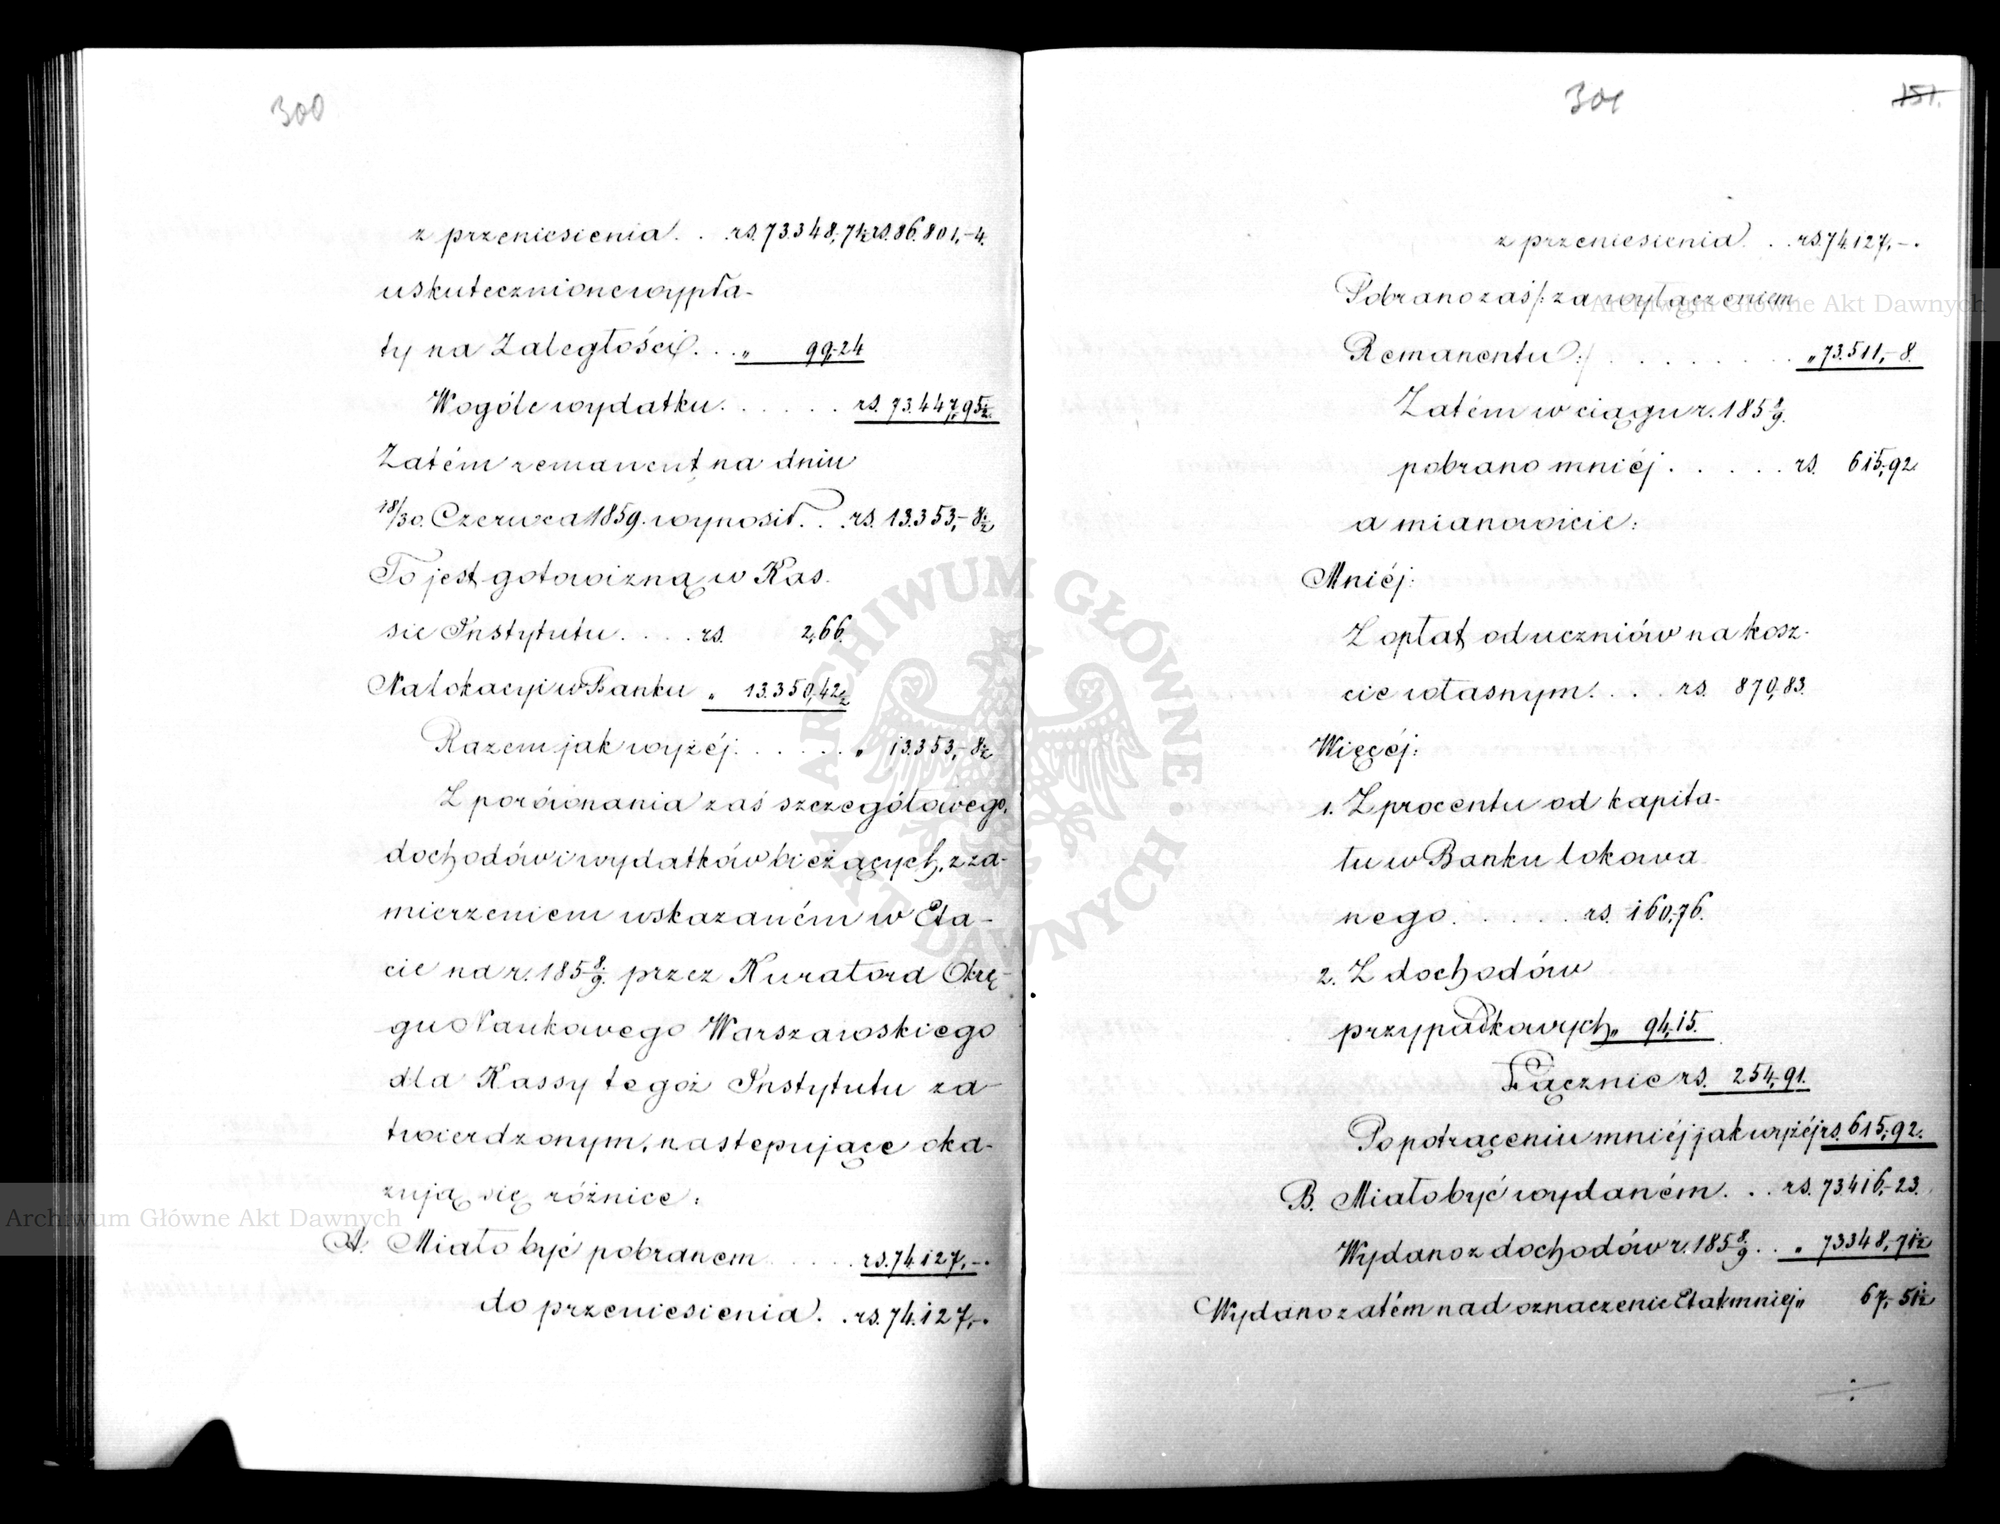 300
z przeniesienia . . . rs. 73.348,71½ rs. 86.801,-4.
uskutecznione wypła-
ty na Zaległości . . . „ 99,24
Wogóle wydatku . . . . . . rs. 73.447,95½.
Zatém remanent na dniu
18/30. Czerwca 1859. wynosił . . . rs. 13.353,-8½
To jest gotowizną w Kas-
sie Instytutu . . . . rs. 2,66.
Na lokacyi w Banku „ 13.350,42½
Razem jak wyżéj . . . . . . „ 13.353,-8½
Z porównania zaś szczegółowego,
dochodów i wydatków bieżących, z za-
mierzeniem wskazaném w Eta-
cie na r. 1858/9. przez Kuratora Okrę-
gu Naukowego Warszawskiego
dla Kassy tegoż Instytutu za-
twierdzonym, nastepujące oka-
zują się różnice:
A. Miało być pobranem . . . . . rs. 74.127,-.
do przeniesienia . . rs. 74.127,-.
301
151.
z przeniesienia . . rs. 74.127,-.
Pobrano zaś /: za wyłączeniem
Remanentu :/ . . . . . . . . „ 73.511,-8.
Zatém w ciągu r. 1858/9.
pobrano mniéj . . . . . rs. 615,92
a mianowicie:
Mniéj:
Z opłat od uczniów na kosz-
cie własnym . . . . rs. 870,83.
Więcéj:
1. Z procentu od kapita-
łu w Banku lokowa
nego . . . . . . rs. 160,76.
2. Z dochodów
przypadkowych „ 94,15.
Łącznie rs. 254,91.
Po potrąceniu mniéj jak wyżéj rs. 615,92.
B. Miało być wydaném . . . rs. 73.416,23.
Wydano z dochodów r. 1858/9 . . „ 73.348,71½
Wydano zatém nad oznaczenie Etat mniej „ 67,-51½
Archiwum Główne Akt Dawnych
Archiwum Główne Akt Dawnych
ARCHIWUM GŁÓWNE AKT DAWNYCH